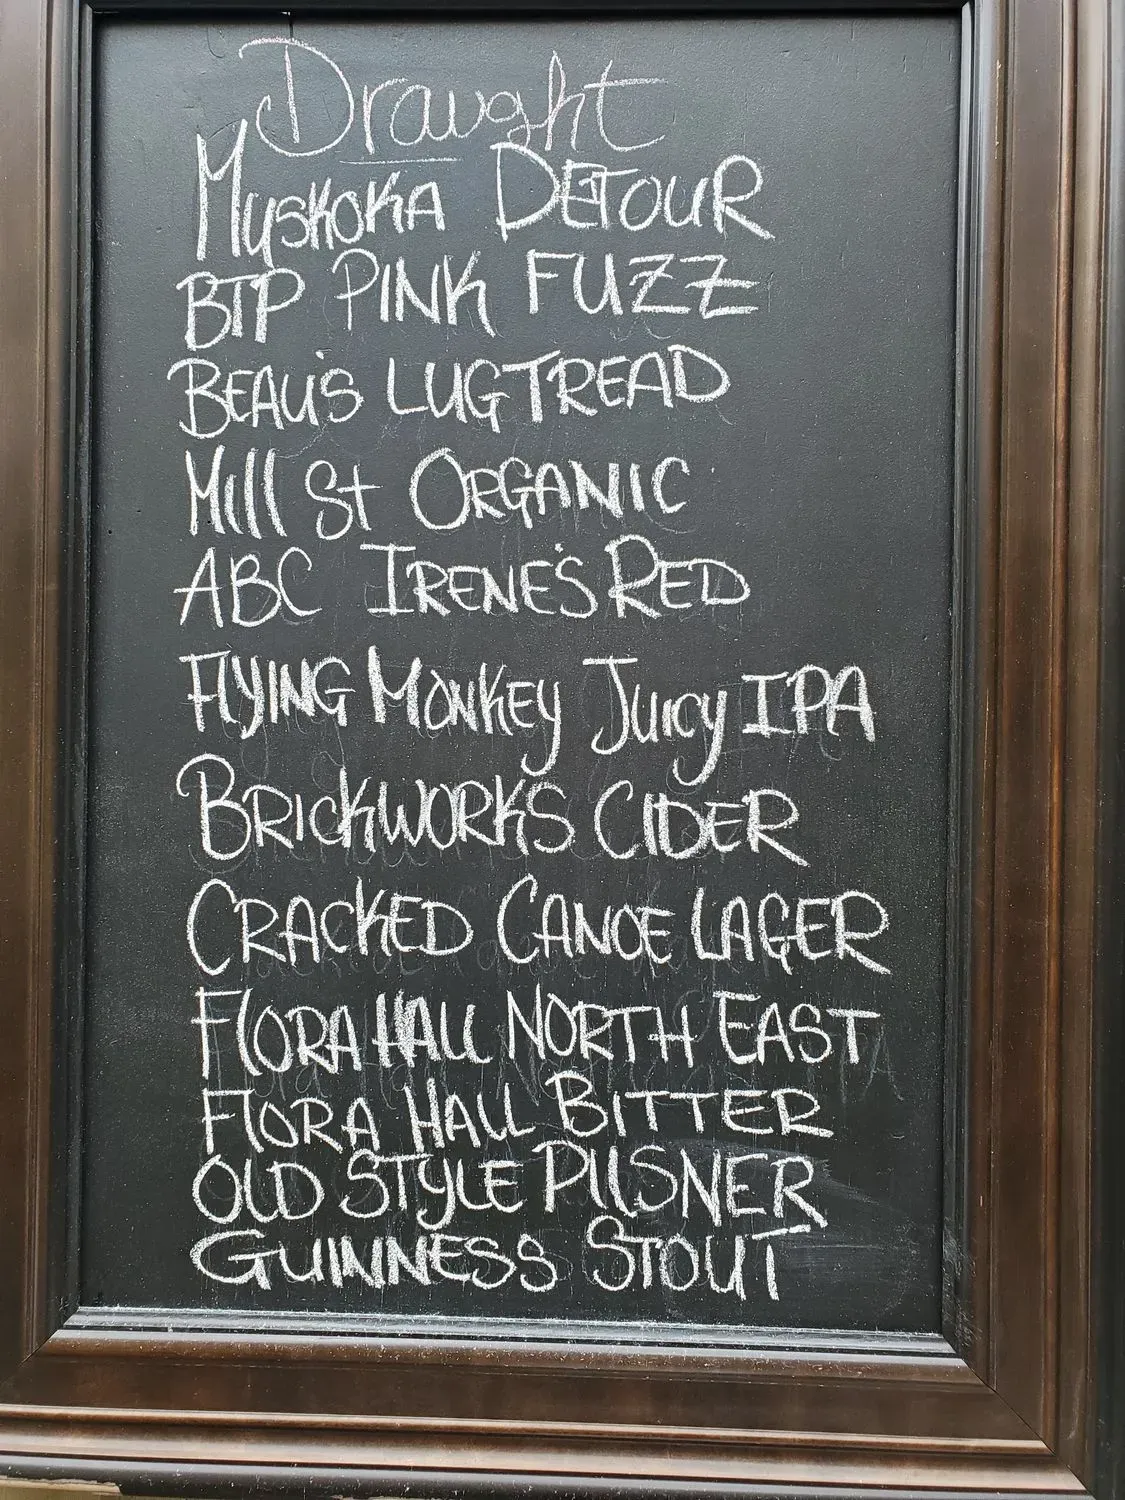 Draught
Muskoka DETOUR
BTP PINK FUZZ
BEAU'S LUGTREAD
Mill St ORGANIC
ABC IRENE'S RED
FLYING MONKEY JUICY IPA
BRICKWORKS CIDER
CRACKED CANOE LAGER
FLORA HALL NORTH EAST
FLORA HALL BITTER
OLD STYLE PILSNER
GUINNESS STOUT